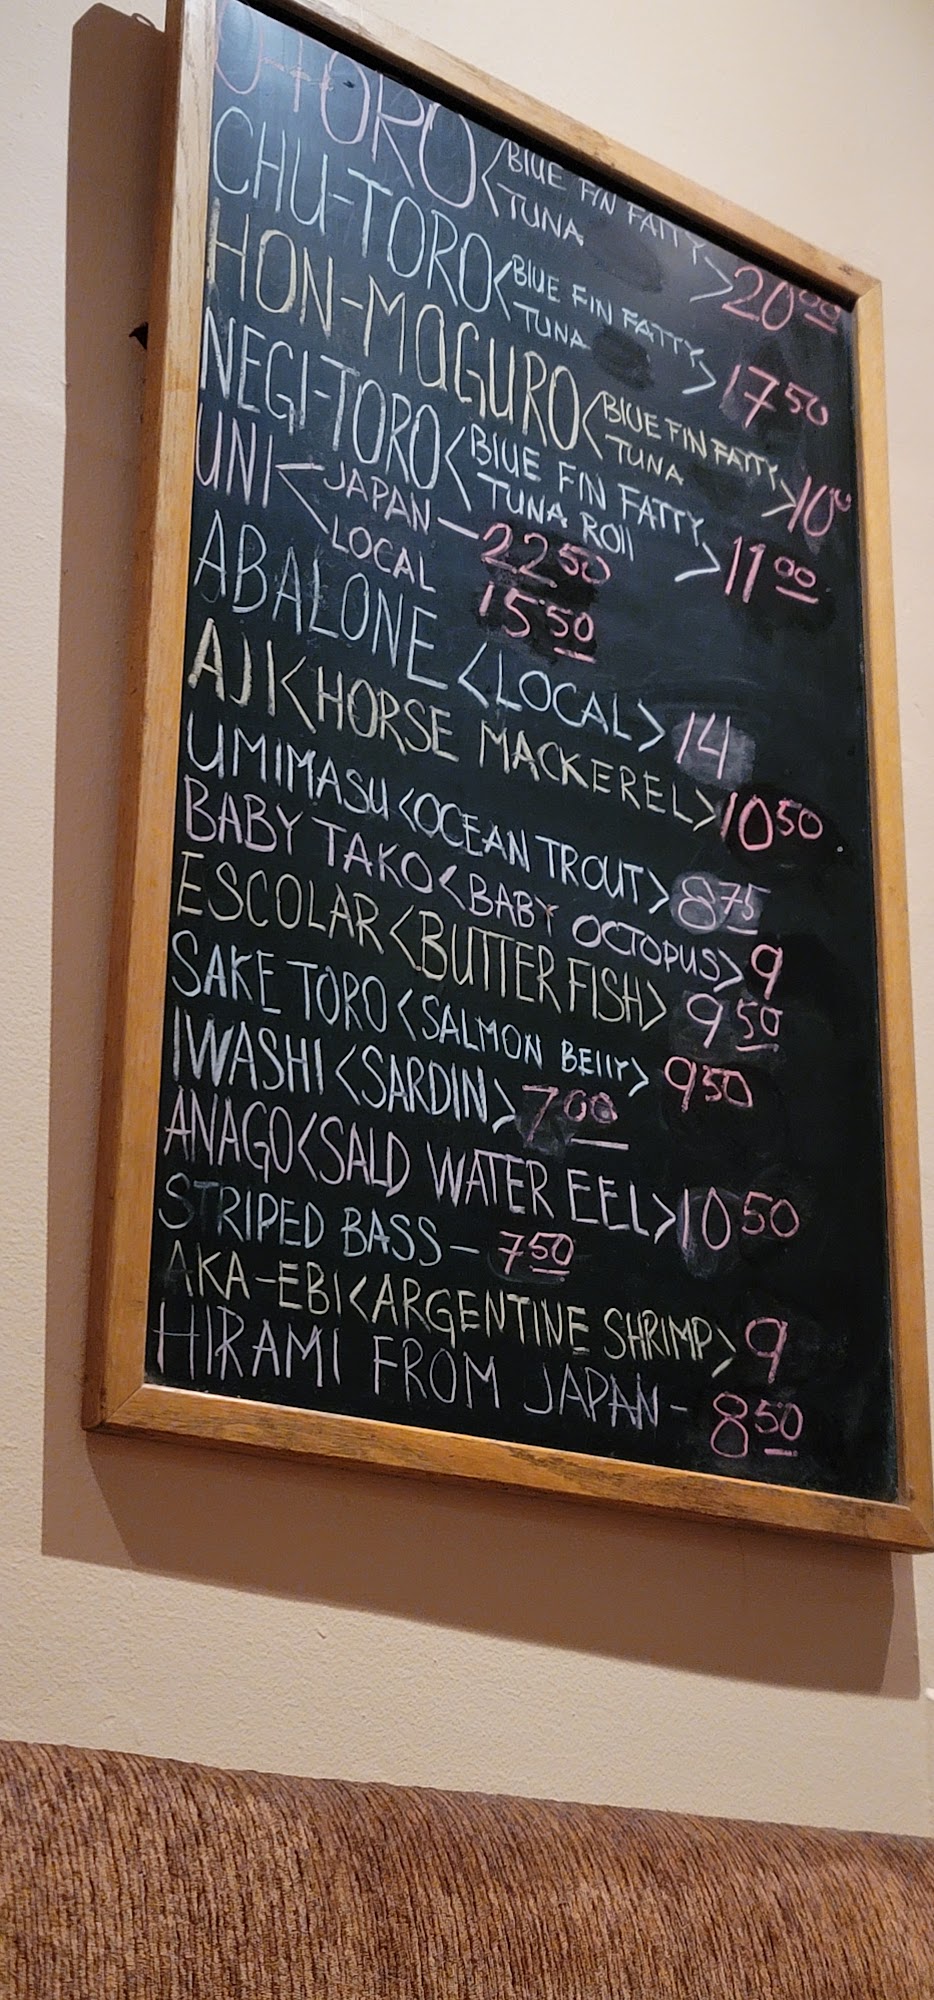 O-TORO <BLUE FIN FATTY TUNA> 20.00
CHU-TORO <BLUE FIN FATTY TUNA> 17 50
HON-MAGURO <BLUE FIN FATTY TUNA> 10 0
NEGI-TORO <BLUE FIN FATTY TUNA ROll> 11 00
UNI < JAPAN - 22 50
LOCAL 15 50
ABALONE <LOCAL> 14
AJI <HORSE MACKEREL> 10 50
UMIMASU <OCEAN TROUT> 8 75
BABY TAKO <BABY OCTOPUS> 9
ESCOLAR <BUTTER FISH> 9 50
SAKE TORO <SALMON BEllY> 9 50
IWASHI <SARDIN> 7.00
ANAGO <SALD WATER EEL> 10 50
STRIPED BASS - 7 50
AKA-EBI <ARGENTINE SHRIMP> 9
HIRAMI FROM JAPAN - 8 50